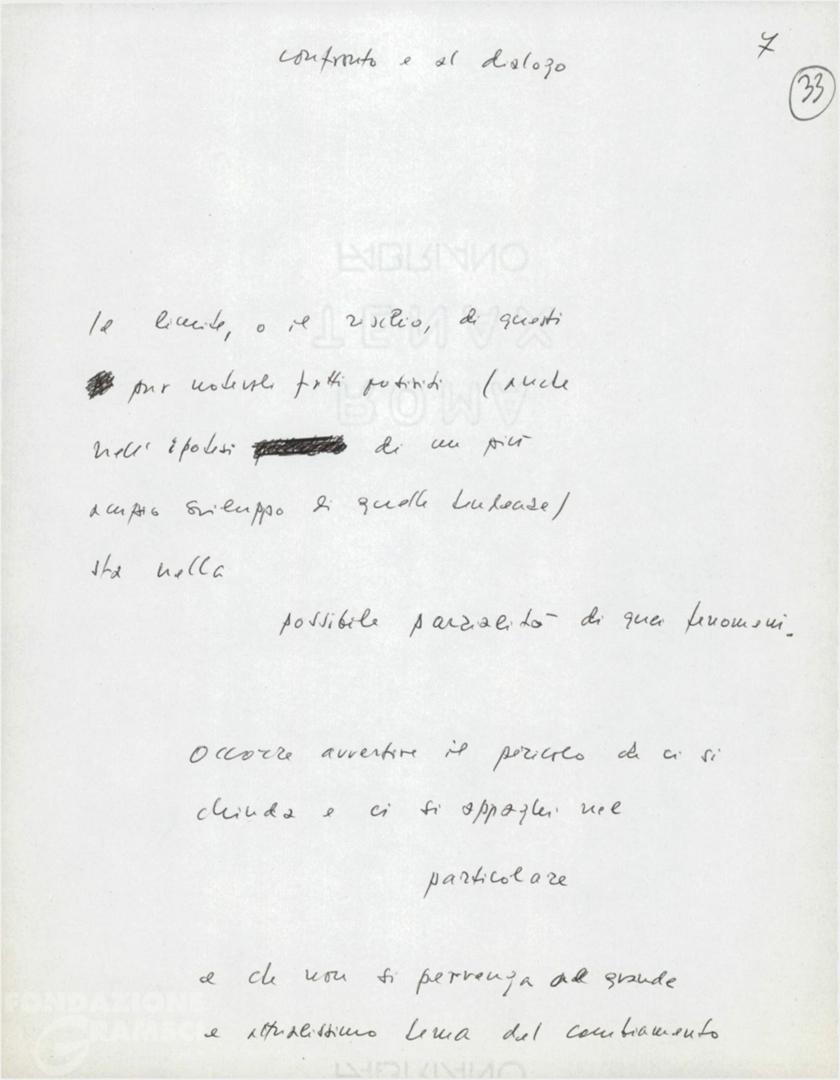 7
33
confronto e al dialogo
FABRIANO
TENAX
ROMA
Il limite, o il rischio, di questi
pur notevoli fatti positivi (anche
nell'ipotesi di un più
ampio sviluppo di quelle tendenze)
sta nella
possibile parzialità di quei fenomeni.
Occorre avvertire il pericolo che ci si
chiuda e ci si appaghi nel
particolare
e che non si pervenga al grande
FONDAZIONE
GRAMSCI
e attualissimo tema del cambiamento
FABRIANO